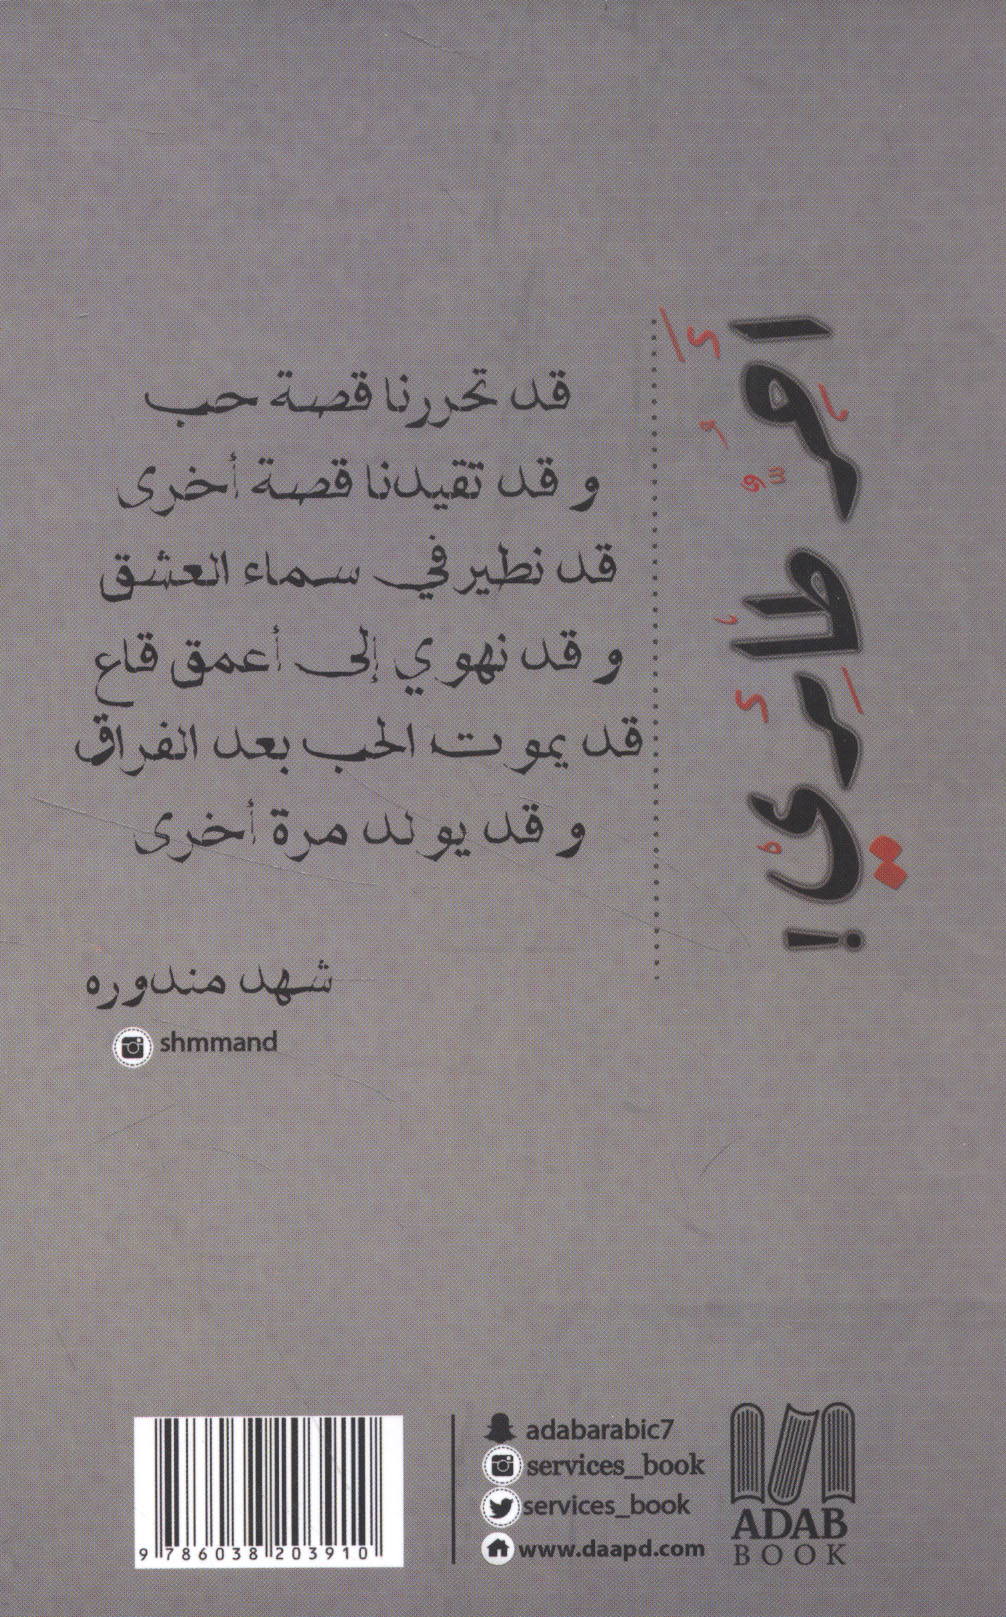 أمر طارئ!
قد تحررنا قصة حب
و قد تقيدنا قصة أخرى
قد نطير في سماء العشق
و قد نهوي إلى أعمق قاع
قد يموت الحب بعد الفراق
و قد يولد مرة أخرى
شهد مندوره
shmmand
adabarabic7
services_book
services_book
www.daapd.com
ADAB
BOOK
9 786038 203910